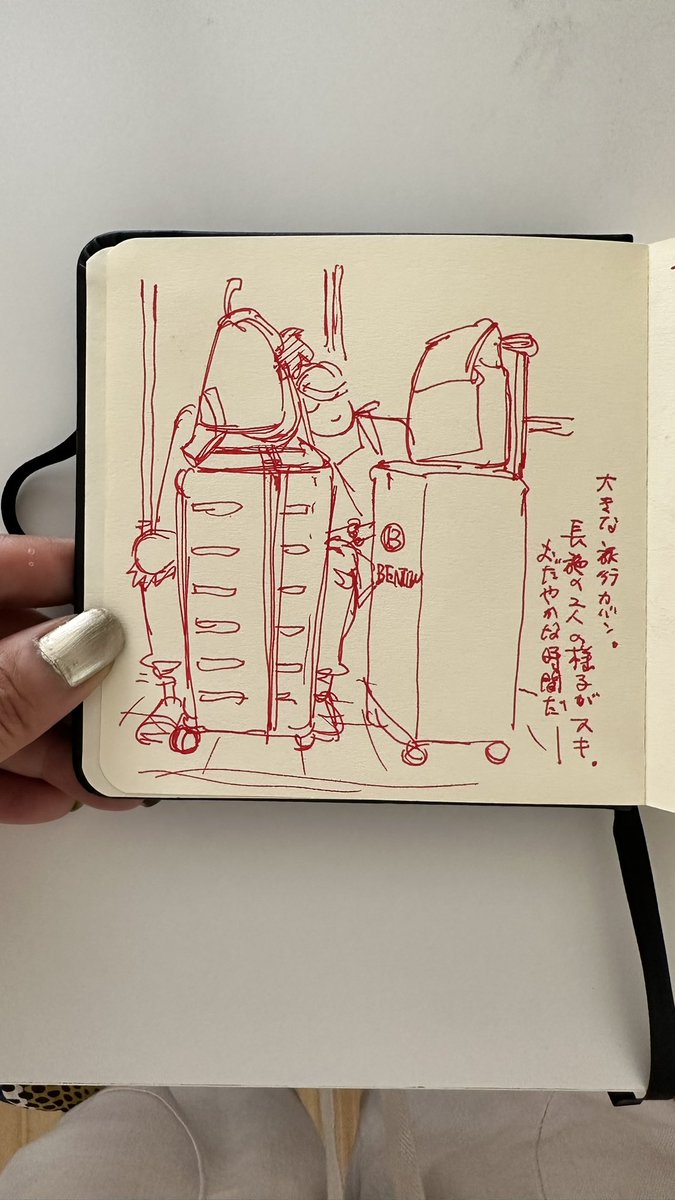 大きな旅行カバン。
長旅の2人の様子がスキ。
おだやかな時間だ
B